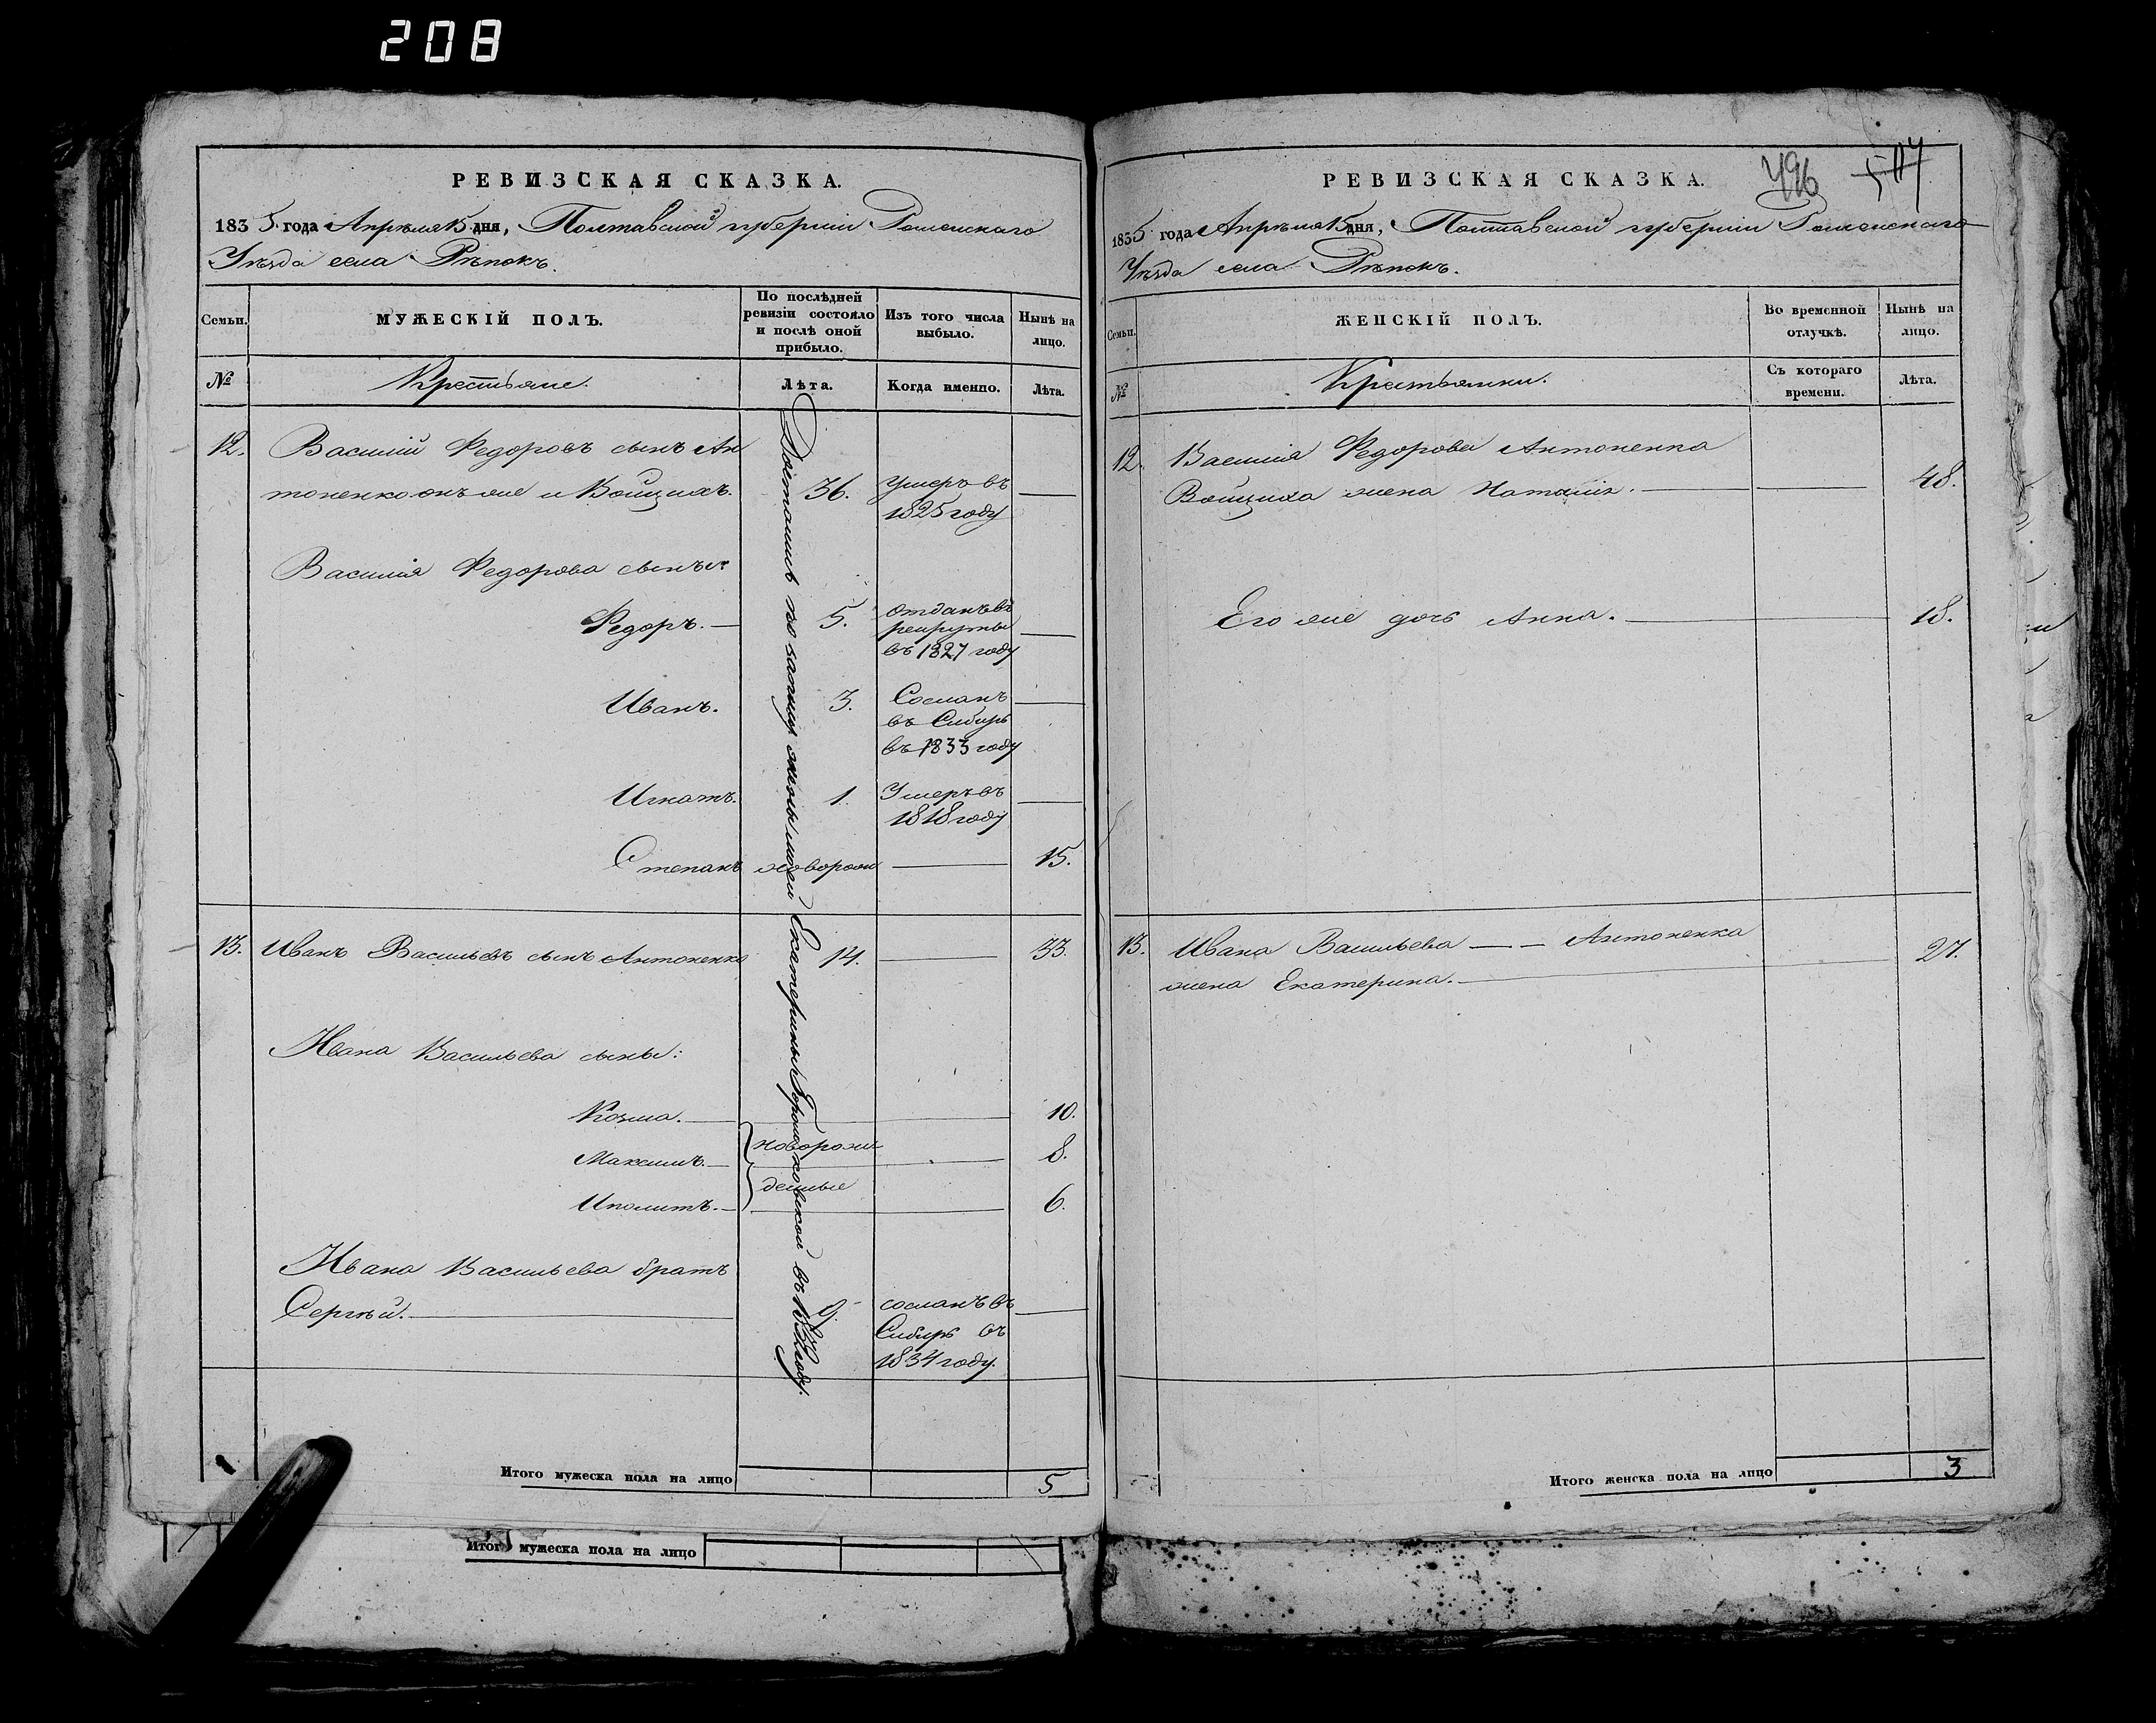 208
РЕВИЗСКАЯ СКАЗКА.
1835 года Апрѣля 15 дня, Полтавской губерніи Роменскаго
Уѣзда села Рѣпокъ.
Семьи.
МУЖЕСКІЙ ПОЛЪ.
По послѣдней
ревизіи состояло
и послѣ оной
прибыло.
Изъ того числа
выбыло.
Нынѣ на
лицо.
№
Крестьяне.
Лѣта.
Когда именно.
Лѣта.
12. Василій Федоровъ сынъ Ан
тоненко онъ же и Воищихъ. 36. умеръ въ
1825 году
Василія Федорова сыны:
Федоръ. 5. отданъ въ
рекруты
въ 1827 году
Иванъ. 3. Сосланъ
въ Сибирь
въ 1833 году
Игнатъ. 1. Умеръ въ
1818 году
Степанъ новорож 15.
13. Иванъ Васильевъ сынъ Антоненко 14. 33.
Ивана Васильева сыны:
Козма. 10.
Максимъ. новорож 8.
Иполитъ. денные 6.
Ивана Васильева братъ
Сергѣй. 9. сосланъ въ
Сибирь въ
1834 году.
Итого мужеска пола на лицо 5
Достались по Екатерины въ году.
Итого мужеска пола на лицо
РЕВИЗСКАЯ СКАЗКА.
496 517
1835 года Апрѣля 15 дня, Полтавской губерніи Роменскаго
Уѣзда села Рѣпокъ.
Семьи.
ЖЕНСКІЙ ПОЛЪ.
Во временной
отлучкѣ.
Нынѣ на
лицо.
№
Крестьянки.
Съ котораго
времени.
Лѣта.
12. Василія Федорова Антоненка
Воищиха жена Наталія. 48.
Его же дочь Анна. 18.
13. Ивана Васильева Антоненка
жена Екатерина. 27.
Итого женска пола на лицо 3